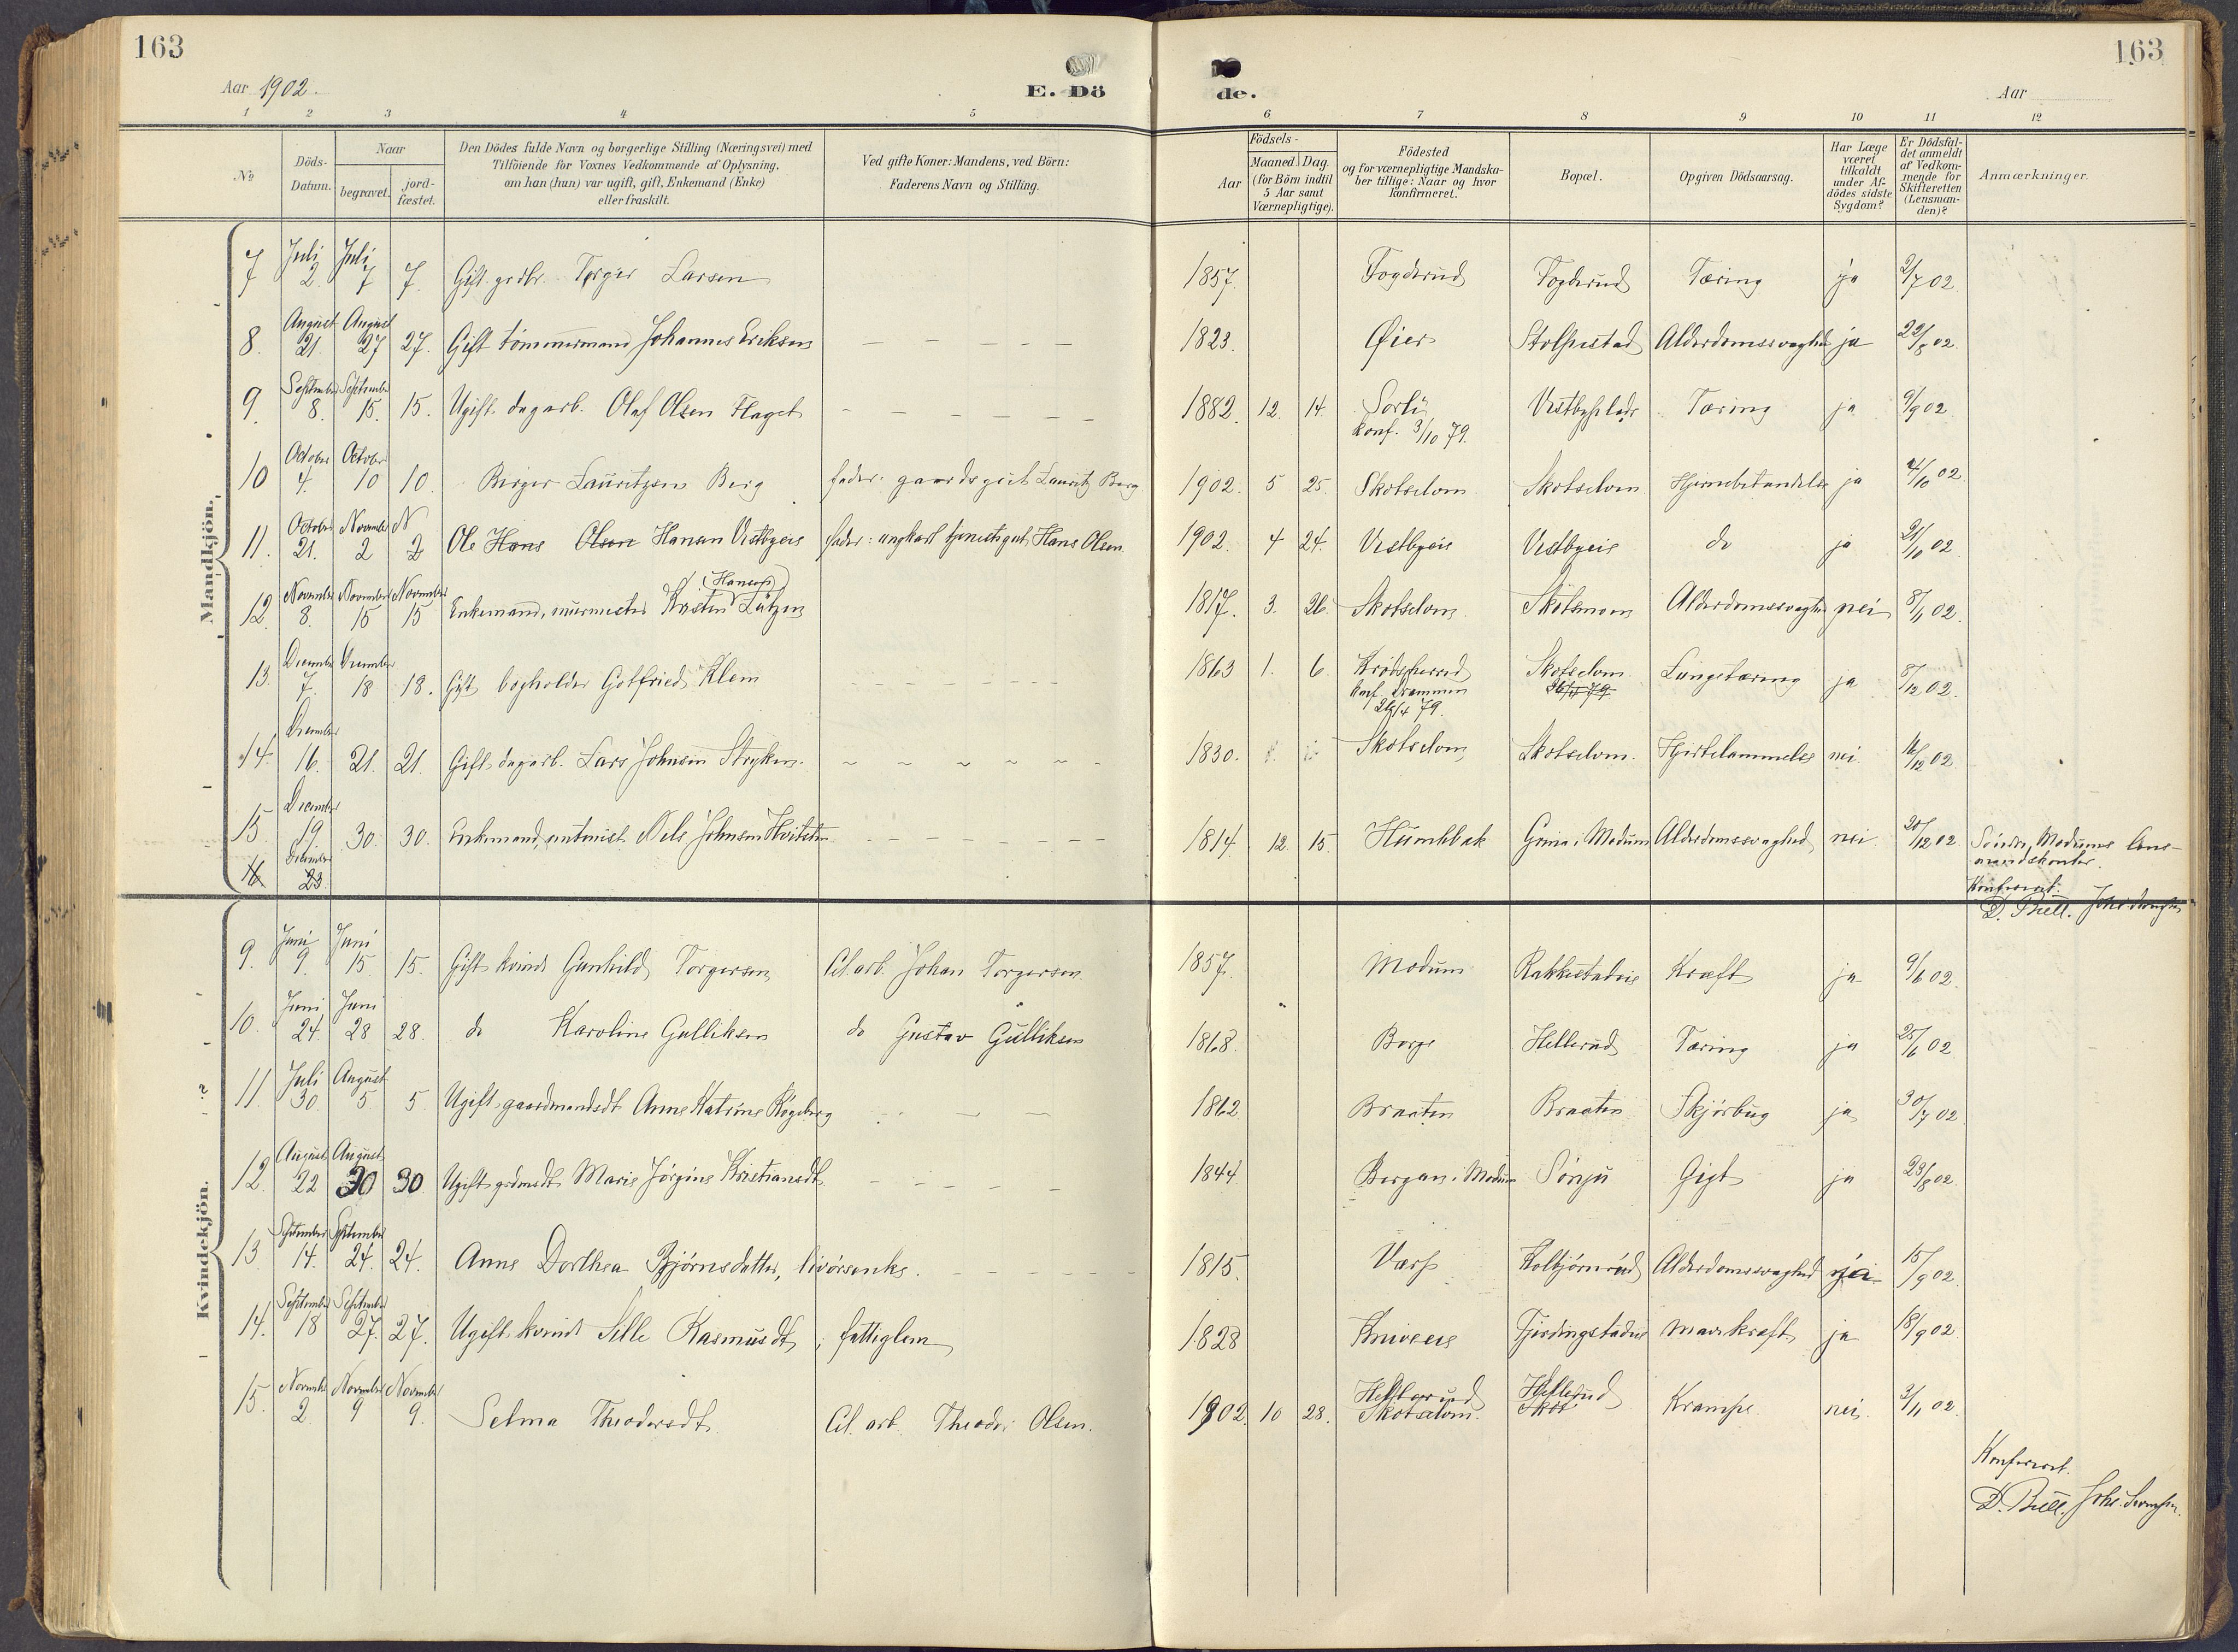 163
163
Aar 1902.
E. Dö
de.
Aar
1 2 3 4 5
6 7 8 9 10 11 12
№
Döds-
Datum.
Naar
begravet.
jord-
fæstet.
Den Dödes fulde Navn og borgerlige Stilling (Næringsvei) med
Tilföiende for Voxnes Vedkommende af Oplysning,
om han (hun) var ugift, gift, Enkemand (Enke)
eller fraskilt.
Ved gifte Koner: Mandens, ved Börn:
Faderens Navn og Stilling.
Födsels-
Aar
Maaned. Dag.
(for Börn indtil
5 Aar samt
Værnepligtige).
Födested
og for værnepligtige Mandska-
ber tillige: Naar og hvor
konfirmeret.
Bopæl.
Opgiven Dödsaarsag.
Har Læge
været
tilkaldt
under Af-
dödes sidste
Sygdom?
Er Dödsfal-
det anmeldt
af Vedkom-
mende for
Skifteretten
(Lensman-
den)?
Anmærkninger.
Mandkjön.
7 Juli 2. Juli 7 7. Gift grdbr. Torger Larsen 1857. Fogderud Fogderud Tæring ja 2/7 02
8. August 21. August 27 27. Gift tömmermand Johannes Eriksen — — — — — 1823. Øier Stolpestad Alderdomssvaghed ja 22/8 02.
9. September 8. September 15. 15. Ugift dagarb. Olaf Olsen Flaget — — — — — — 1882. 12. 14. Sorli Vestbyplads Tæring ja 9/9 02.
Konf. 3/10 79.
10 October 4. October 10 10. Birger Lauritzen Berg fader: gaardsgut Lauritz Berg 1902. 5 25. Skotselven Skotselven Hjernebetændelse ja 4/10 02.
11. October 21. November 2 N 2 Ole Hans Olsen Hansen Vestbyeie fader: ungkarl tjenestegut Hans Olsen 1902. 4 24. Vestbyeie Vestbyeie do ja 21/10 02
(Hansen)
12. November 8. November 15 November 15 Enkemand, murmester Kristen Lützen 1817. 3. 26. Skotselven Alderdomssvaghed nei 8/11 02.
13. December 7. December 18 18. Gift bogholder Gotfried Klem 1863 1. 6. Krödsherred Skotselven Lungetæring ja 8/12 02.
Konf. Drammen
26/4 79.
14. December 16. 21. 21. Gift dagarb. Lars Johnsen Stryken. 1830. Skotselven Skotselven. Hjertelammelse nei 16/12 02
15. December 19 30. 30. Enkemand, Nels Johnsen 1814 12. 15. Humlebæk Modum Alderdomssvaghed nei 20/12 02 Söndre Modums lens-
mandskontor.
December 23
Konfereret.
D. Bull.
Kvindekjön.
9. Juni 9. Juni 15. 15. Gift kvinde Gunhild Torgersen Cel.arb. Johan Torgersen. 1857. Modum Rakkestadeie Kræft ja 9/6 02.
10. Juni 24. Juni 28 28. do Karoline Gulliksen do Gustav Gulliksen 1868. Borge Hellerud Tæring ja 25/6 02
11. Juli 30. August 5. 5 Ugift gaardmandsdt. Anne Katrine Røgeberg 1862. Braaten Braaten Skjörbug ja 30/7 02.
12. August 22 August 30 30 Ugift grdmsdt. Marie Jörgine Kristiansdt. 1844. Bergan i Modum Gigt ja 23/8 02.
13 September 14. September 24. 24. Anne Dorthea Bjørnsdatter, 1815. Varp Kolbjørnrud Alderdomssvaghed ja 15/9 02.
14. September 18 September 27. 27. Ugift kvinde Sille Rasmusdt., fattiglem 1828 Kniveeie Fjerdingstadeie mavekræft ja 18/9 02.
15. November 2. November 9 November 9. Selma Theodorsdt. Cel. arb. Theodor Olsen. 1902 10 28. Hellerud Hellerud Krampe nei. 3/11 02
Skotselven. Skot
Konfereret.
D. Bull.